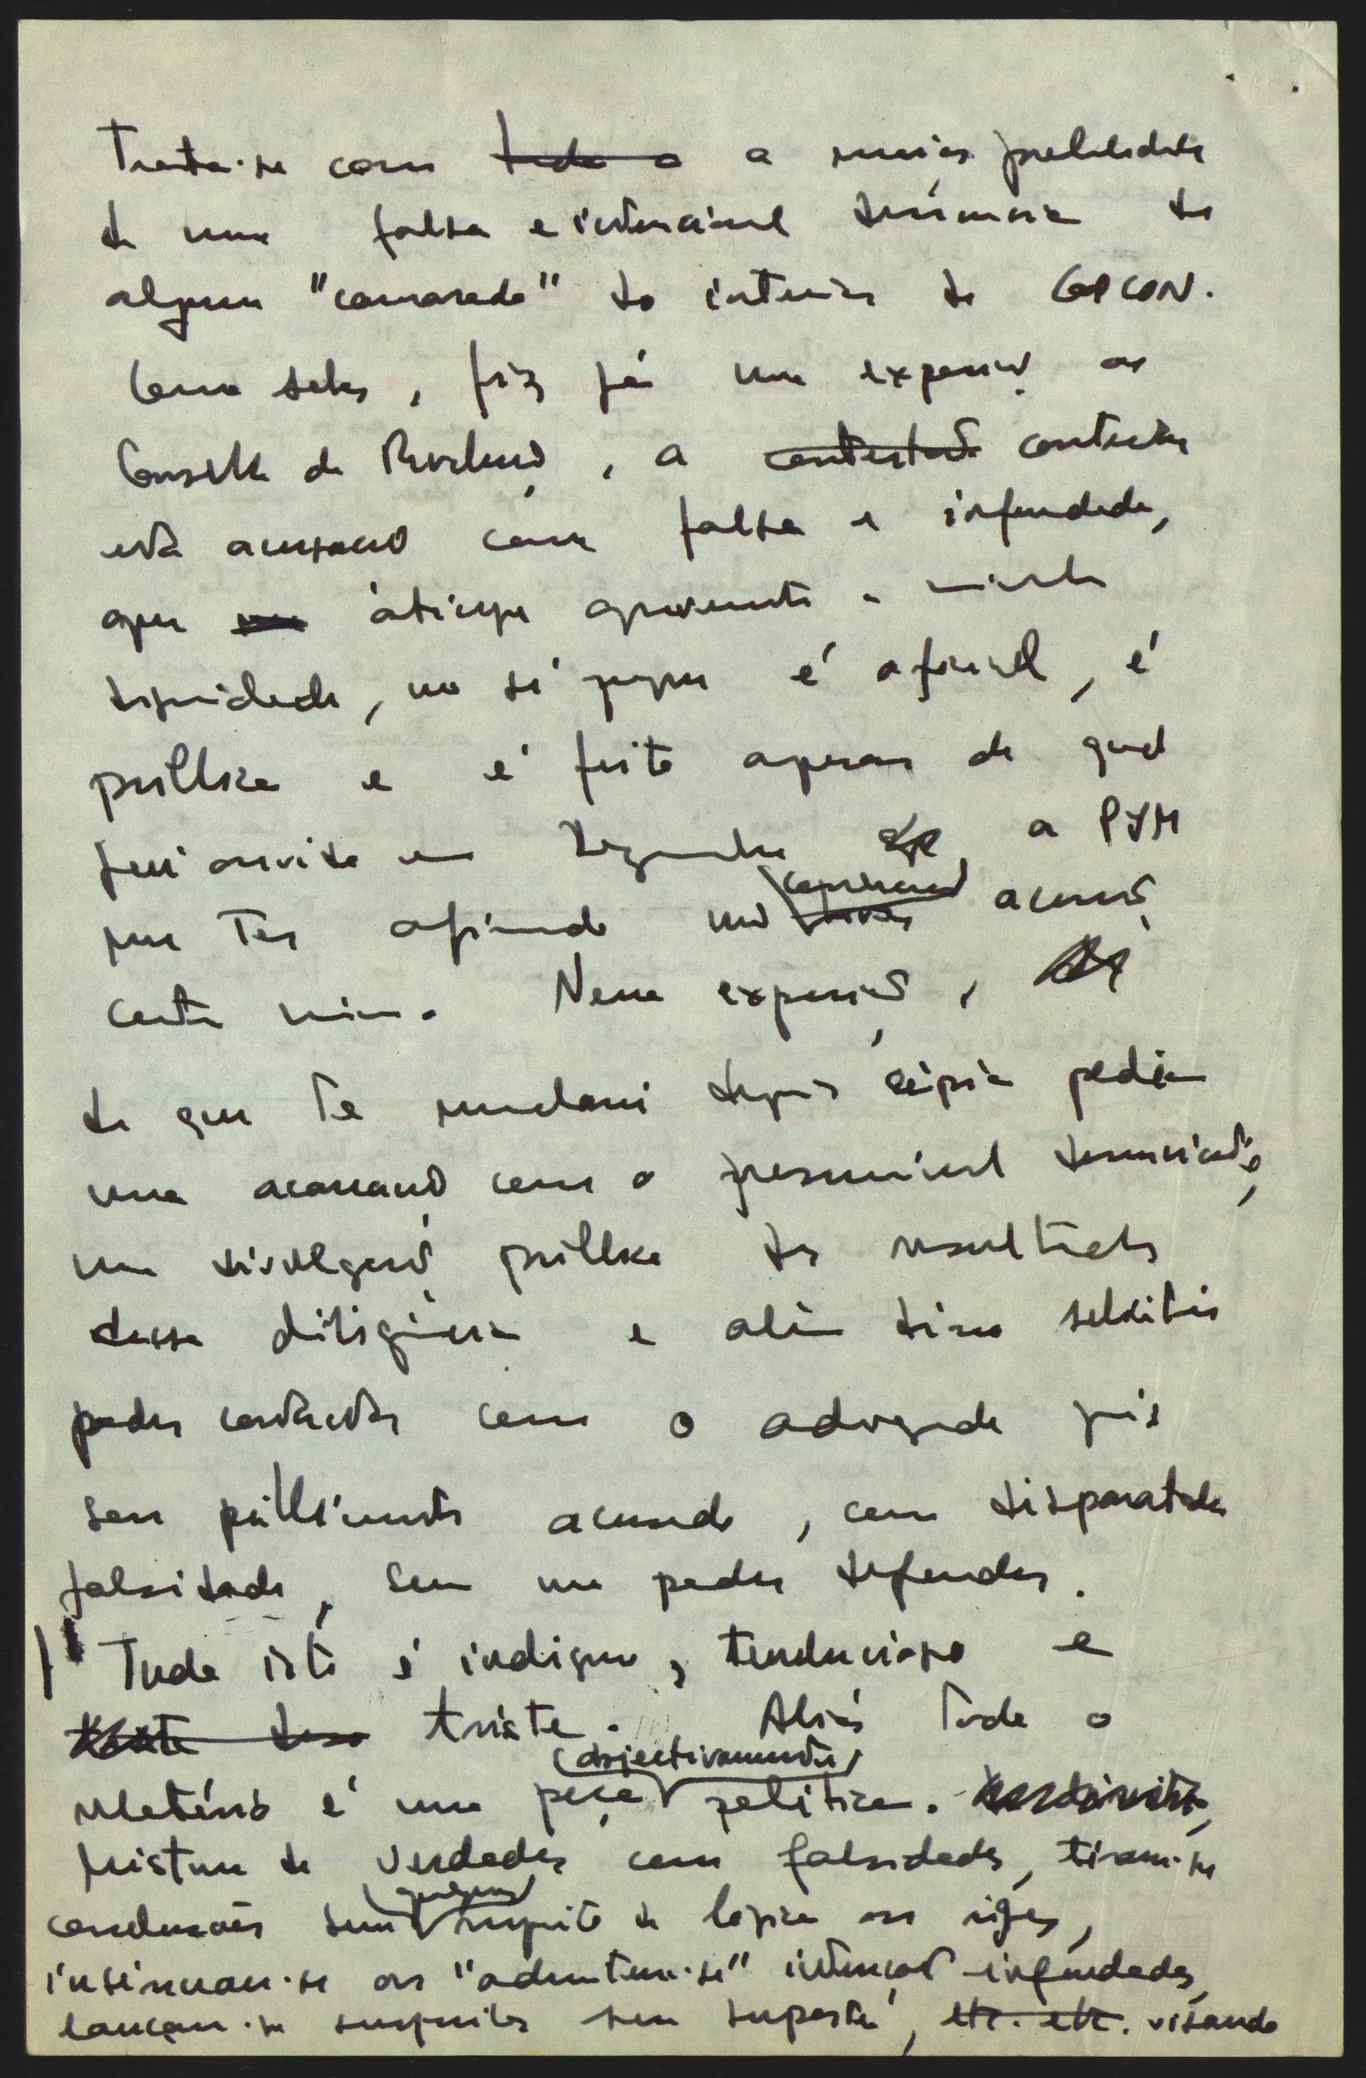 Trata-se com ~~toda a~~ a maior probabilidade
de uma falsa e intencional denúncia de
algum "camarada" do interior do COPCON.
Como sabes, fiz já uma exposição ao
Conselho da Revolução, a ~~contestar~~ contestar
esta acusação como falsa e infundada,
que atinge gravemente a minha
dignidade, no só porque é oficial, é
pública e é feita apesar de quando
fui ouvido em a PJM
me ter afirmado não acusação
contra mim. Nessa exposição,
de que te mandarei depois cópia pedia
uma acareação com o presumível denunciante,
uma divulgação pública dos resultados
dessa diligência e além disso solicitei
poder contactar com o advogado pois
sou públicamente acusado, com disparatada
falsidade, sem me poder defender.
Tudo isto é indigno, tendencioso e
triste. Aliás todo o
(objectivamente)
relatório é uma peça política.
Mistura de verdades com falsidades, tiram-se
conclusões sem (qualquer) respeito de lógica ou rigor,
insinuam-se ou "admitem-se" intenções infundadas,
lançam-se suspeitas sem suporte, ~~etc. etc.~~ visando